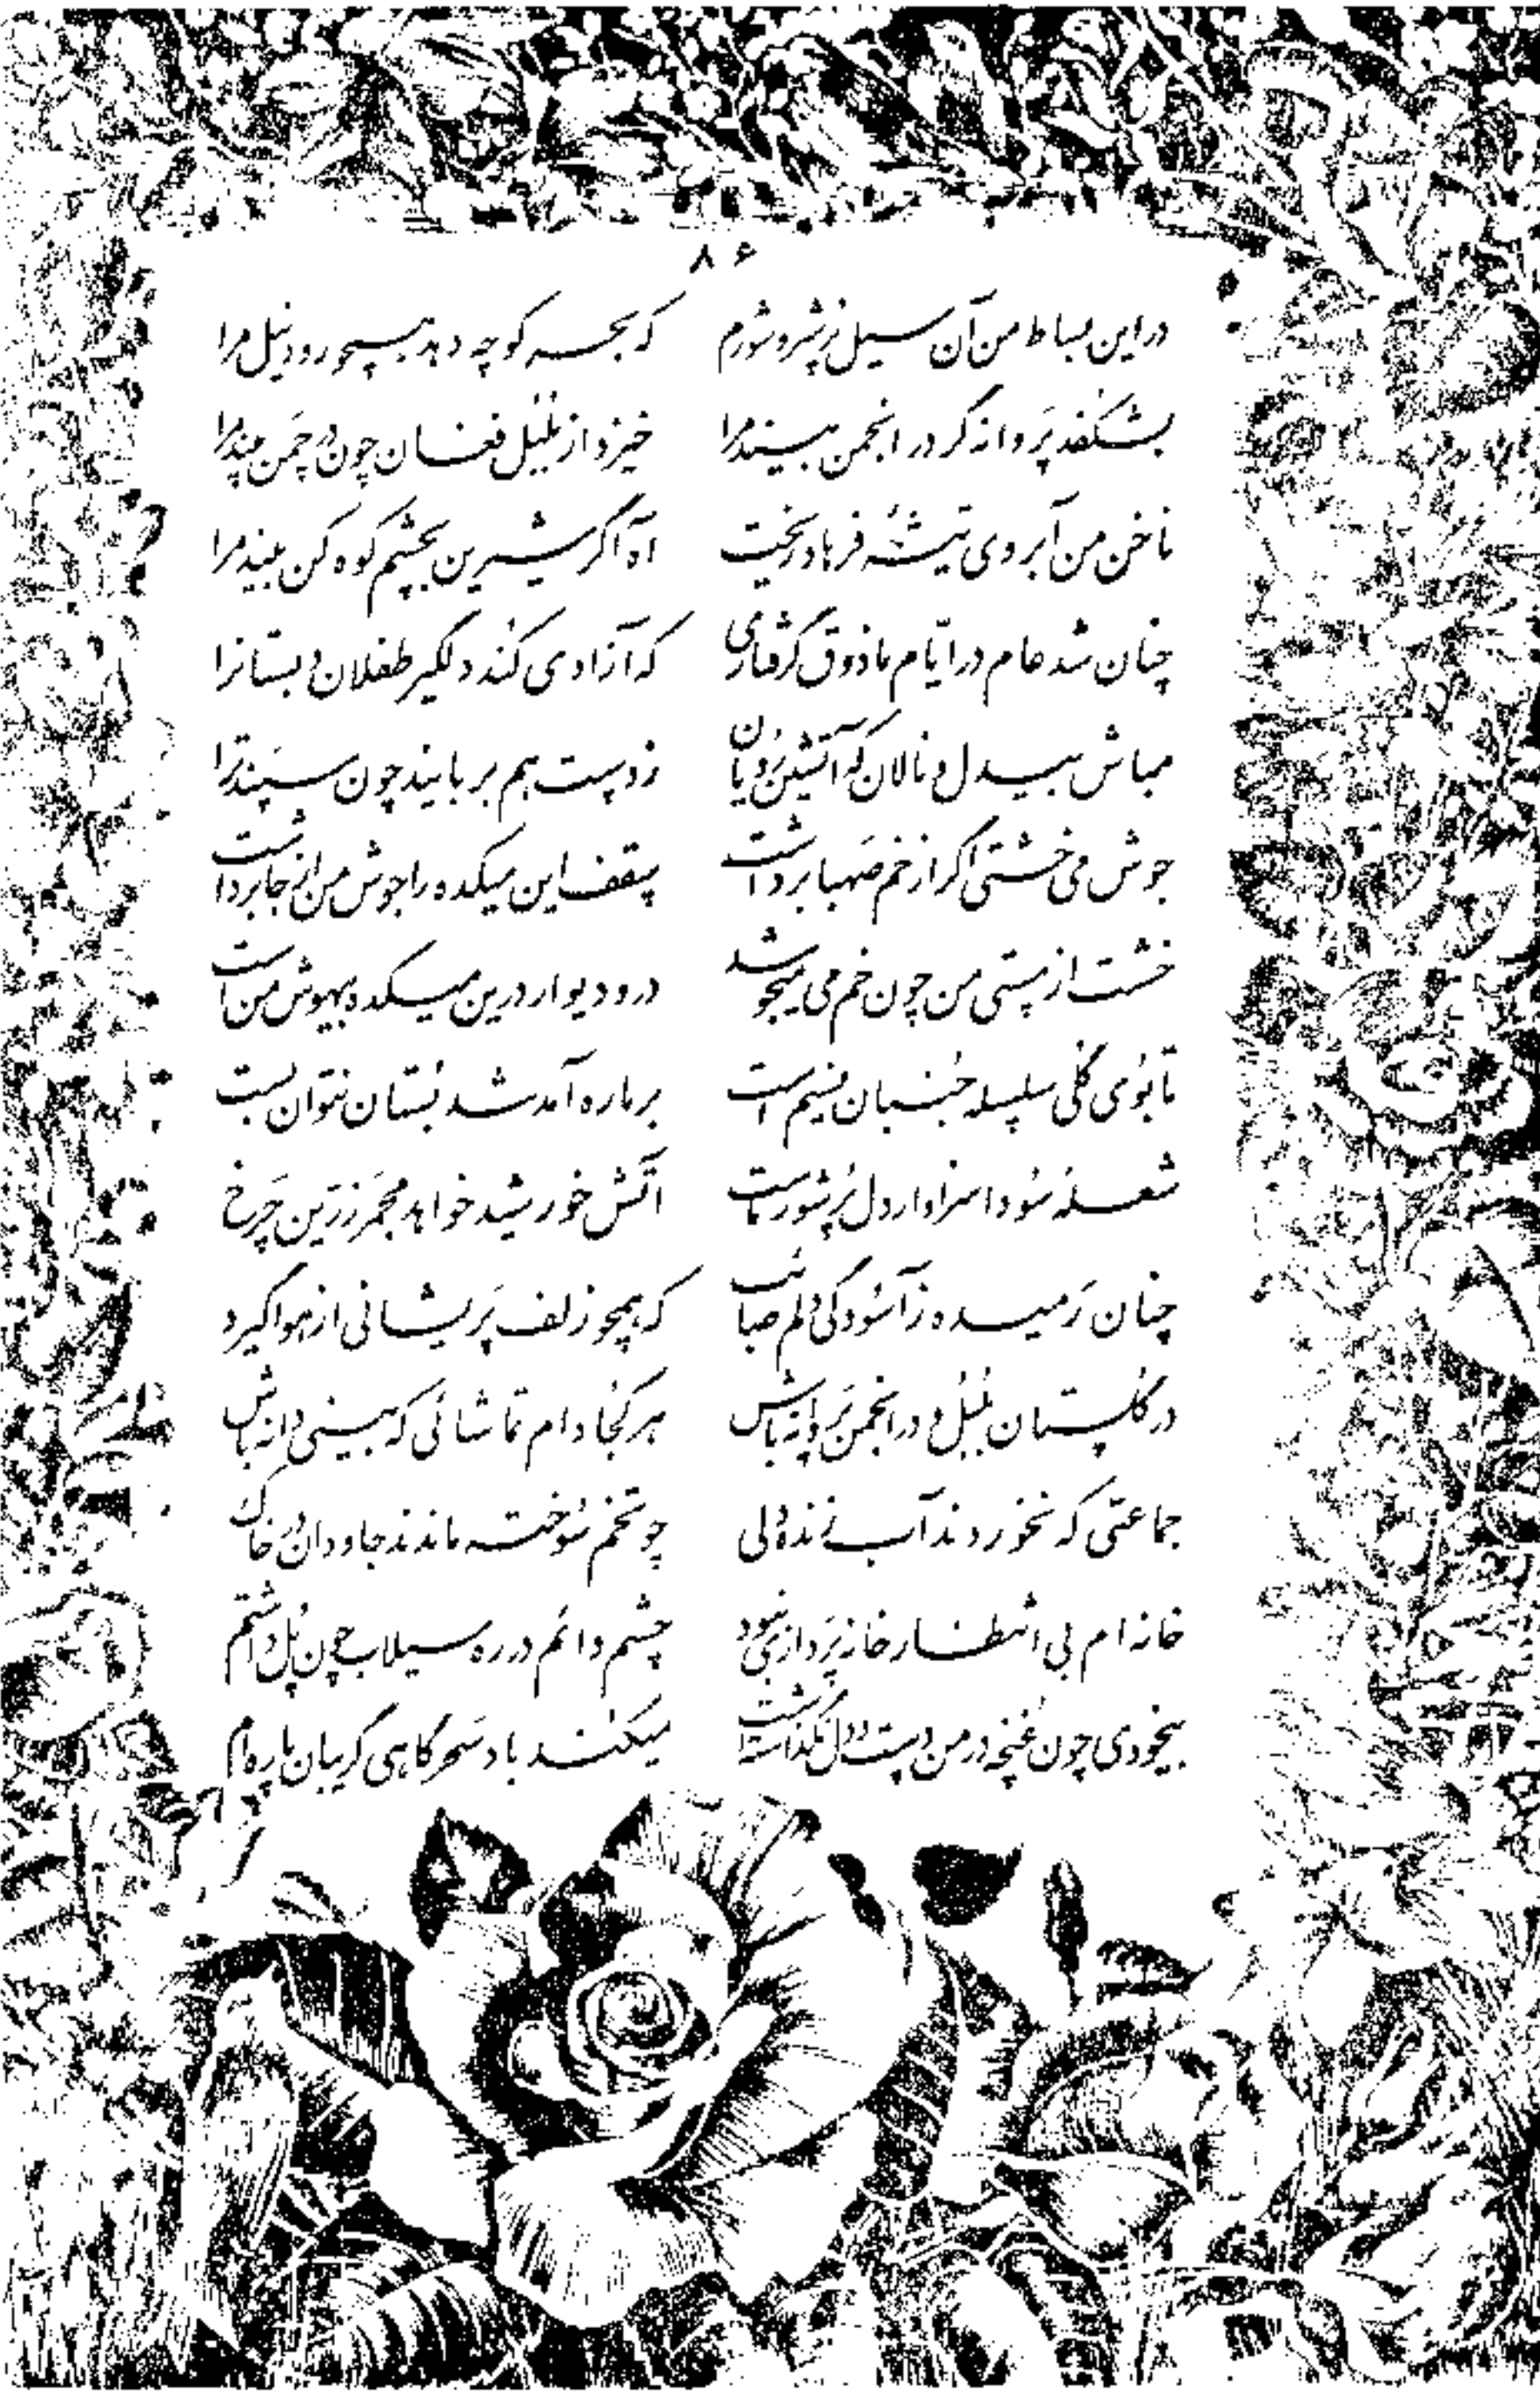 ۸۶
در این بساط من آن سیل پرشر و شورم که بحر کوچه دهد همچو رود نیل مرا
بشکفد پروانه گر در انجمن بیند مرا خیزد از بلبل فغان چون در چمن بیند مرا
ناخن من آبروی تیشهٔ فرهاد ریخت آه اگر شیرین بچشم کوه کن بیند مرا
چنان شد عام در ایام ما ذوق گرفتاری که آزادی کند دلگیر طفلان دبستانرا
مباش بیدل و نالان که آتشین رویان ز دست هم بربایند چون سپند ترا
جوش می خشتی اگر از خم صهبا برداشت سقف این میکده را جوش من از جا برداشت
خشت از مستی من چون خم می میجوشد در و دیوار درین میکده بیهوش من است
تا بوی گلی سلسله جنبان نسیم است بر ما ره آمد شد بستان نتوان بست
شعلهٔ سودا سزاوار دل پرشور ماست آتش خورشید خواهد مجمر زرین چرخ
چنان رمیده ز آسودگی دلم صائب که همچو زلف پریشانی از هوا گیرد
در گلستان بلبل و در انجمن پروانه باش هر کجا دام تماشائی که بینی دانه باش
جماعتی که نخوردند آب زنده دلی چو تخم سوخته ماندند جاودان در خاک
خانه ام بی انتظار خانه پردازی نبود چشم دائم در ره سیلاب چون پل داشتم
بیخودی چون غنچه در من دست و دل نگذاشته است میکند باد سحرگاهی گریبان پاره ام